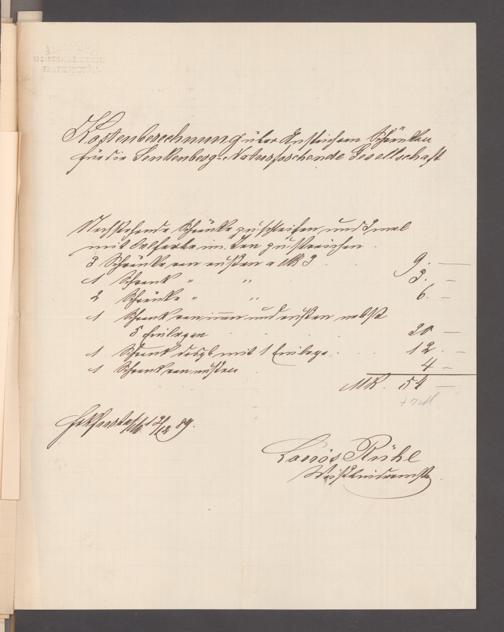 Kostenberechnung über Anstreichen Schränken
für die Senkenberg. Naturforschende Gesellschaft
Nachstehende Schränke zu schleifen und 3 mal
mit Oelfarbe im Ton zu streichen.
3 Schränke von außen a Mk 3 . . 9. —
1 Schrank " " 3. —
2 Schränke " " 6 —
1 Schrank von innen und außen nebst
5 Einlagen 20 —
1 Schrank desgl. mit 1 Einlage . . . 12. —
1 Schrank von außen . 4 —
Mk. 54 —
89.
Rühl
Weißbindermstr